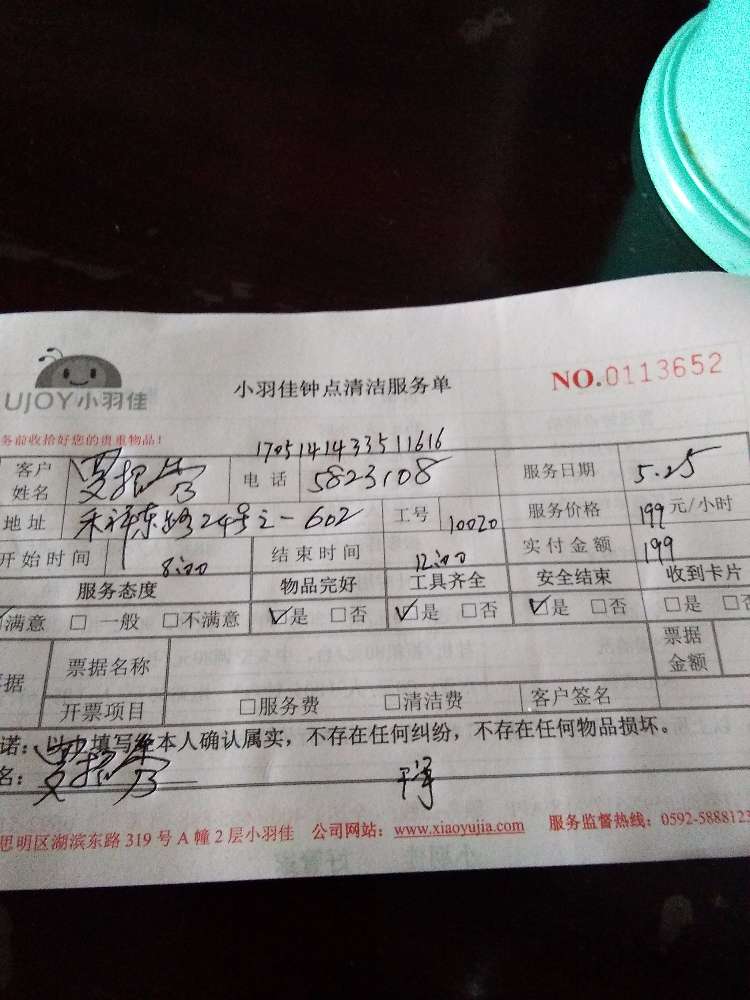 UJOY小羽佳
小羽佳钟点清洁服务单
NO.0113652
务前收拾好您的贵重物品!
170514143351616
客户姓名 电话 5823108 服务日期 5.25
地址 东路24号之一602 工号 10020 服务价格 199元/小时
开始时间 8:00 结束时间 12:00 实付金额 199
服务态度 物品完好 工具齐全 安全结束 收到卡片
满意 □ 一般 □不满意 ☑是 □否 ☑是 □否 ☑是 □否 □是 □否
据 票据名称 票据金额
开票项目 □服务费 □清洁费 客户签名
诺:以上填写经本人确认属实,不存在任何纠纷,不存在任何物品损坏。
名:
思明区湖滨东路319号A幢2层小羽佳 公司网站:www.xiaoyujia.com 服务监督热线:0592-5888123